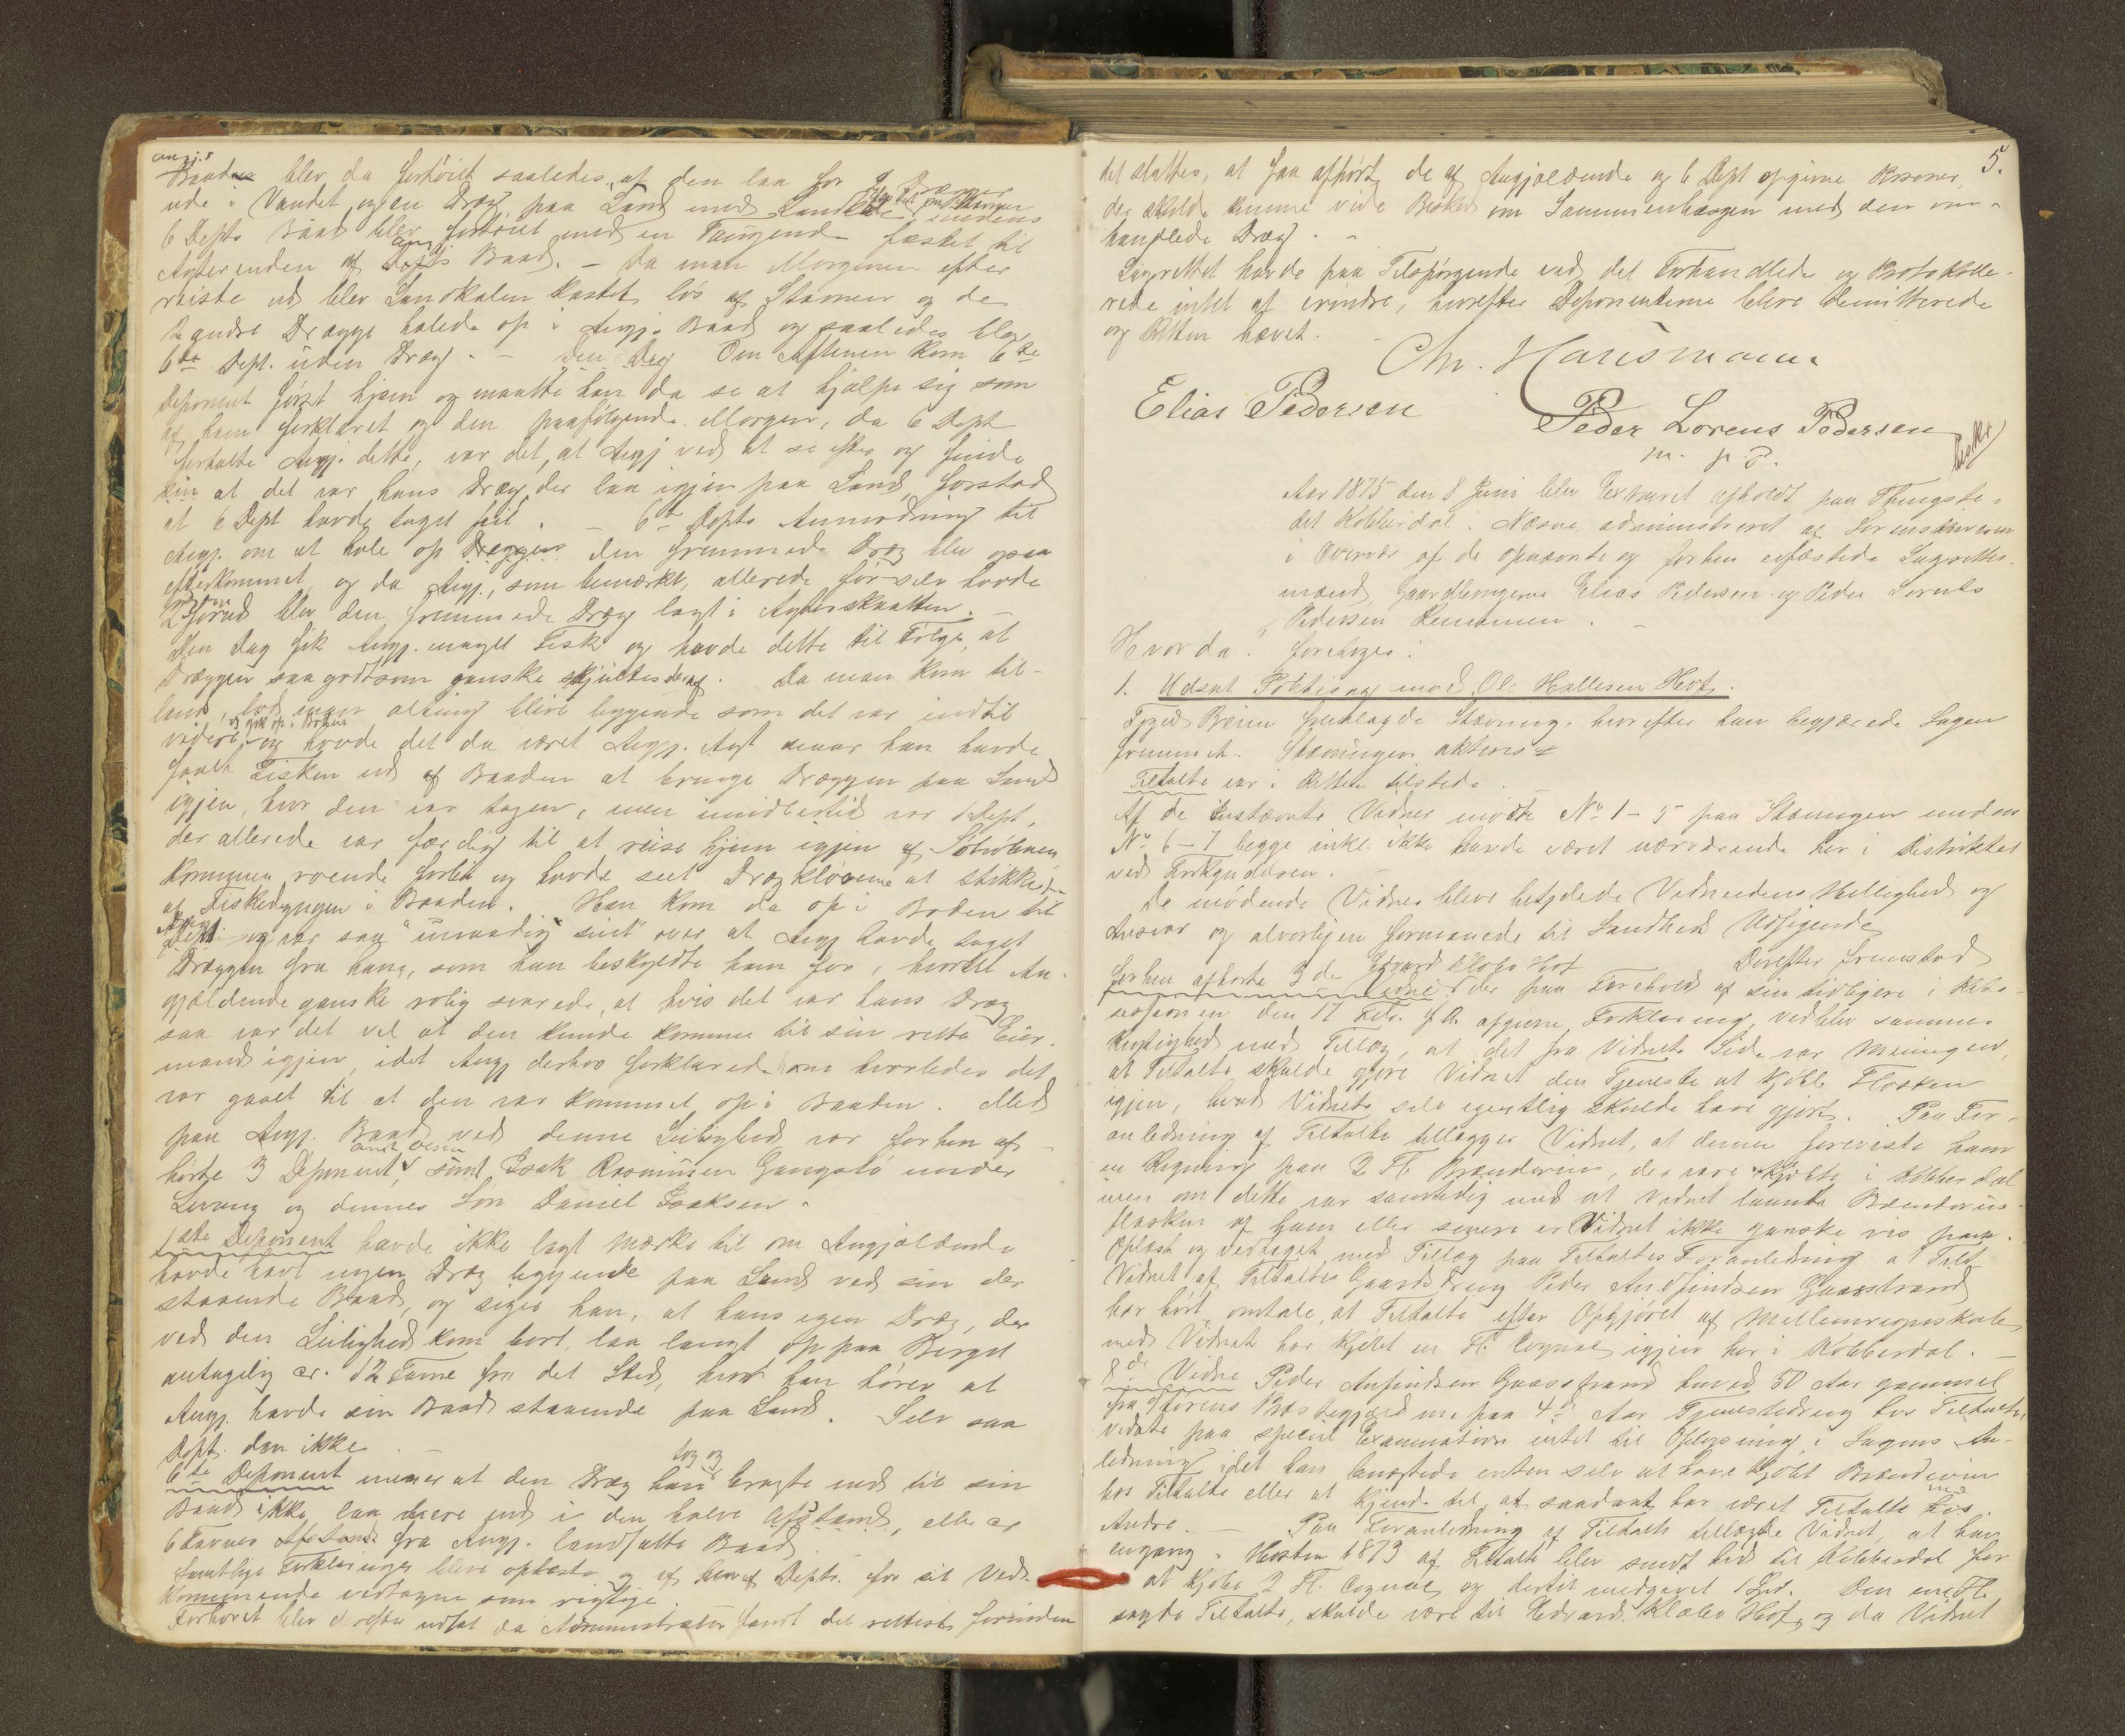 angj.s
Baad blev da fortøiet saaledes, at den laa for 2 Drægger
ude i Vandet og en Dræg paa Land med Landkalen imedens
6 Depts Baad blev fortøiet med en Tougende fæstet til
Agterenden af angj.s Baad. – Da man Morgenen efter
reiste ud blev Landkalen kastet løs af Stavnen og de
2 andre Drægge halede op i Angj. Baad og saaledes blev
6te Dept. uden Dræg. – Den Dag Om Aftenen kom 6te
Deponent først hjem og maatte han da se at hjælpe sig som
af ham forklaret og den paafølgende Morgen, da 6 Dept
fortalte Angj. dette, var det, at Angj ved at se efter og finde
sin at det var hans Dræg, der laa igjen paa Land, forstod
at 6 Dept havde taget feil. – 6te Depts Anmodning til
Angj. om at hale op Dræggen den fremmede Dræg blev ogsaa
efterkommet, og da Angj., som bemærket, allerede før selv havde
2 forud blev den fremmede Dræg lagt i Agterskaatten. –
Den Dag fik Angj. meget Fisk og havde dette til Følge, at
Dræggen saa godtsom ganske skjultes deraf. Da man kom til-
land, lod man alting blive liggende som det var indtil
videre, og gik op i Boden og havde det da været Angj. Agt naar han havde
faaet Fisken ud af Baaden at bringe Dræggen paa Land
igjen, hvor den var tagen, men imidlertid var 1 Dept,
der allerede var færdig til at reise hjem igjen af
kommen roende forbi og havde seet Drægkløerne at stikke frem
af Fiskedyngen i Baaden. Han kom da op i Boden til
Angj. og var saa "umaadig sint" over at Angj havde taget
Dræggen fra ham, som han beskyldte ham for, hvortil An-
gjældende ganske rolig svarede, at hvis det var hans Dræg
saa var det vel at den kunde komme til sin rette Eier-
mand igjen, idet Angj derhos forklarede ham hvorledes det
var gaaet til at den var kommet op i Baaden. Med
paa Angj. Baad ved denne Leilighed var forhen af-
hørte 3 Deponent, samt Isak Rasmussen Gangstø under
Levang og dennes Søn Daniel Isaksen.
1ste Deponent havde ikke lagt Mærke til om Angjældende
havde havt nogen Dræg liggende paa Land ved sin der
staaende Baad, og siger han, at hans egen Dræg, der
ved den Leilighed kom bort, laa langt op paa Berget
antagelig ca. 12 Favne fra det Sted, hvor han hører at
Angj. havde sin Baad staaende paa Land. Selv saa
Dept. den ikke. –
6te Deponent mener at den Dræg han tog og bragte ned til sin
Baad ikke laa mere end i den halve Afstand, eller ca
6 Favnes Afstand fra Angj. landsatte Baad.
Samtlige Forklaringer bleve oplæste og af hver af Depts. for sit Ved-
kommende vedtagne som rigtige.
Forhøret blev derefter udsat da Administrator fandt det rettest forinden
5.
det sluttes, at faa afhørt de af Angjældende og 6 Dept opgivne Personer,
der skulde kunne vide Besked om Sammenhængen med den om-
handlede Dræg. –
Lagrettet havde paa Tilspørgende ved det Forhandlede og Protokolle-
rede intet at erindre, hvorefter Deponenterne bleve demitterede
og Retten hævet.
Chr. Hansmann
Elias Pedersen
Peder Lorens Pedersen
m. p. P.
Aar 1875 den 8 Juni blev Extraret afholdt paa Thingste-
det Kobberdal i Næsne administreret af Sorenskriveren
i Overvær af de opnævnte og forhen edfæstede Lagrettes-
mænd, Gaardbrugerne Elias Pedersen og Peder Lorents
Pedersen
Hvorda: foretoges:
1. Udsat Politisag mod Ole Hallesen Hof.
Foged Breien fremlagde Stævning, hvorefter han begjærede Sagen
fremmet. Stævningen akteres.
Tiltalte var i Retten tilstede. –
Af de indstævnte Vidner mødte No 1 – 5 paa Stævningen medens
No 6 – 7 begge inkl. ikke havde været nærværende her i Distriktet
ved Forkyndelsen. –
De mødende Vidner bleve betydede Vidneedens Hellighed og
Ansvar og alvorligen formanede til Sandheds Udsigende
Derefter fremstod
forhen afhørte 3de Vidne Edvard Klæbo Hof der paa Forehold af sin tidligere i Rets-
sessionen den 17 Febr. f. A. afgivne Forklaring, vedblev sammes
Rigtighed med Tillæg, at det fra Vidnets Side var Meningen,
at Tiltalte skulde gjøre Vidnet den Tjeneste at kjøbe Flasken
igjen, hvad Vidnet selv egentlig skulde have gjort. Paa For-
anledning af Tiltalte tillægger Vidnet, at denne foreviste ham
en Regning paa 2 Fl Brændeviin, der vare kjøbte i Kobberdal
men om dette var samtidig med at Vidnet laante Brændeviins-
flasken af ham eller senere er Vidnet ikke ganske vis paa.
Oplæst og vedtaget med Tillæg paa Tiltaltes Foranledning at
Vidnet af Tiltaltes Gaardsdreng Peder Anfindsen Gaasstrand
har hørt omtale, at Tiltalte efter Opgjøret af Mellemregnskabet
med Vidnet har kjøbt en Fl. Cognac igjen her i Kobberdal. –
8de Vidne Peder Anfindsen Gaasstrand henved 50 Aar gammel
fra Størens Præstegjæld nu paa 4de Aar Tjenestedreng hos Tiltalte,
vidste paa speciel Examination intet til Oplysning i Sagens An-
ledning idet han benægtede enten selv at have kjøbt Brændeviin
hos Tiltalte eller at kjende til at saadant har været Tiltalte med
Andre. – Paa Foranledning af Tiltalte tillagde Vidnet, at han
engang i Høsten 1873 af Tiltalte blev sendt hid til Kobberdal for
at kjøbe 2 Fl. Cognac og dertil medgivet 1 Spd. Den ene Fl.
sagde Tiltalte, skulde være til Edvard Klæbo Hof, og da Vidnet